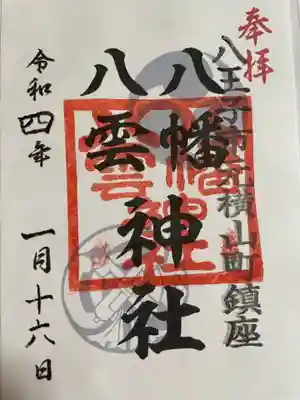 奉拝
八王子市元横山町鎮座
八幡
八雲神社
令和四年 一月十六日